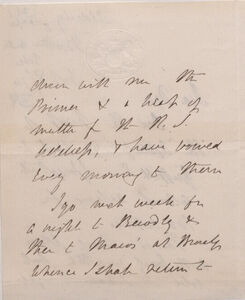 down with me the
Primer & a heap of
matter for the R. S
& have
every morning to them
I go next week for
a night to &
then to at
whence I shall return to